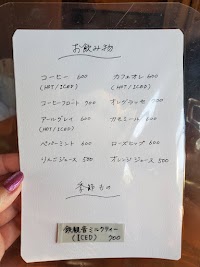 お飲み物
コーヒー 600
(HOT/ICED)
カフェオレ 600
(HOT/ICED)
コーヒーフロート 700
オレグラッセ 700
アールグレイ 600
(HOT/ICED)
カモミール 600
ペパーミント 600
ローズヒップ 600
りんごジュース 500
オレンジジュース 500
季節もの
鉄観音ミルクティー
(ICED) 700